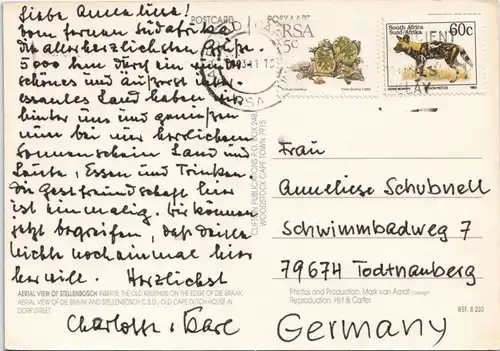 POSTCARD POSKAART
Liebe Anneliese!
Vom fernen Südafrika
die allerherzlichsten Grüße.
5000 km durch ein
schönes und äußerst inter-
essantes Land haben wir
hinter uns und genießen
nun bei herrlichem
Sonnenschein Land und
Leute, Essen und Trinken.
Die Gastfreundschaft hier
ist einmalig. Wir können
jetzt begreifen, daß
nochmal hier
her will. Herzlichst
Charlotte + Karl
RSA
5c
South Africa
Suid-Afrika
60c
1993
CLIFTON PUBLICATIONS P.O. BOX 248
WOODSTOCK CAPE TOWN 7915
Frau
Anneliese Schubnell
Schwimmbadweg 7
79674 Todtnauberg
Germany
AERIAL VIEW OF STELLENBOSCH INSERTS: THE OLD KRUITHUIS ON THE EDGE OF DE BRAAK.
AERIAL VIEW OF DE BRAAK AND STELLENBOSCH C.B.D.; OLD CAPE DUTCH HOUSE IN
DORP STREET.
Photos and Production: Mark van Aardt Copyright
Reproduction: Hirt & Carter
REF. B 232